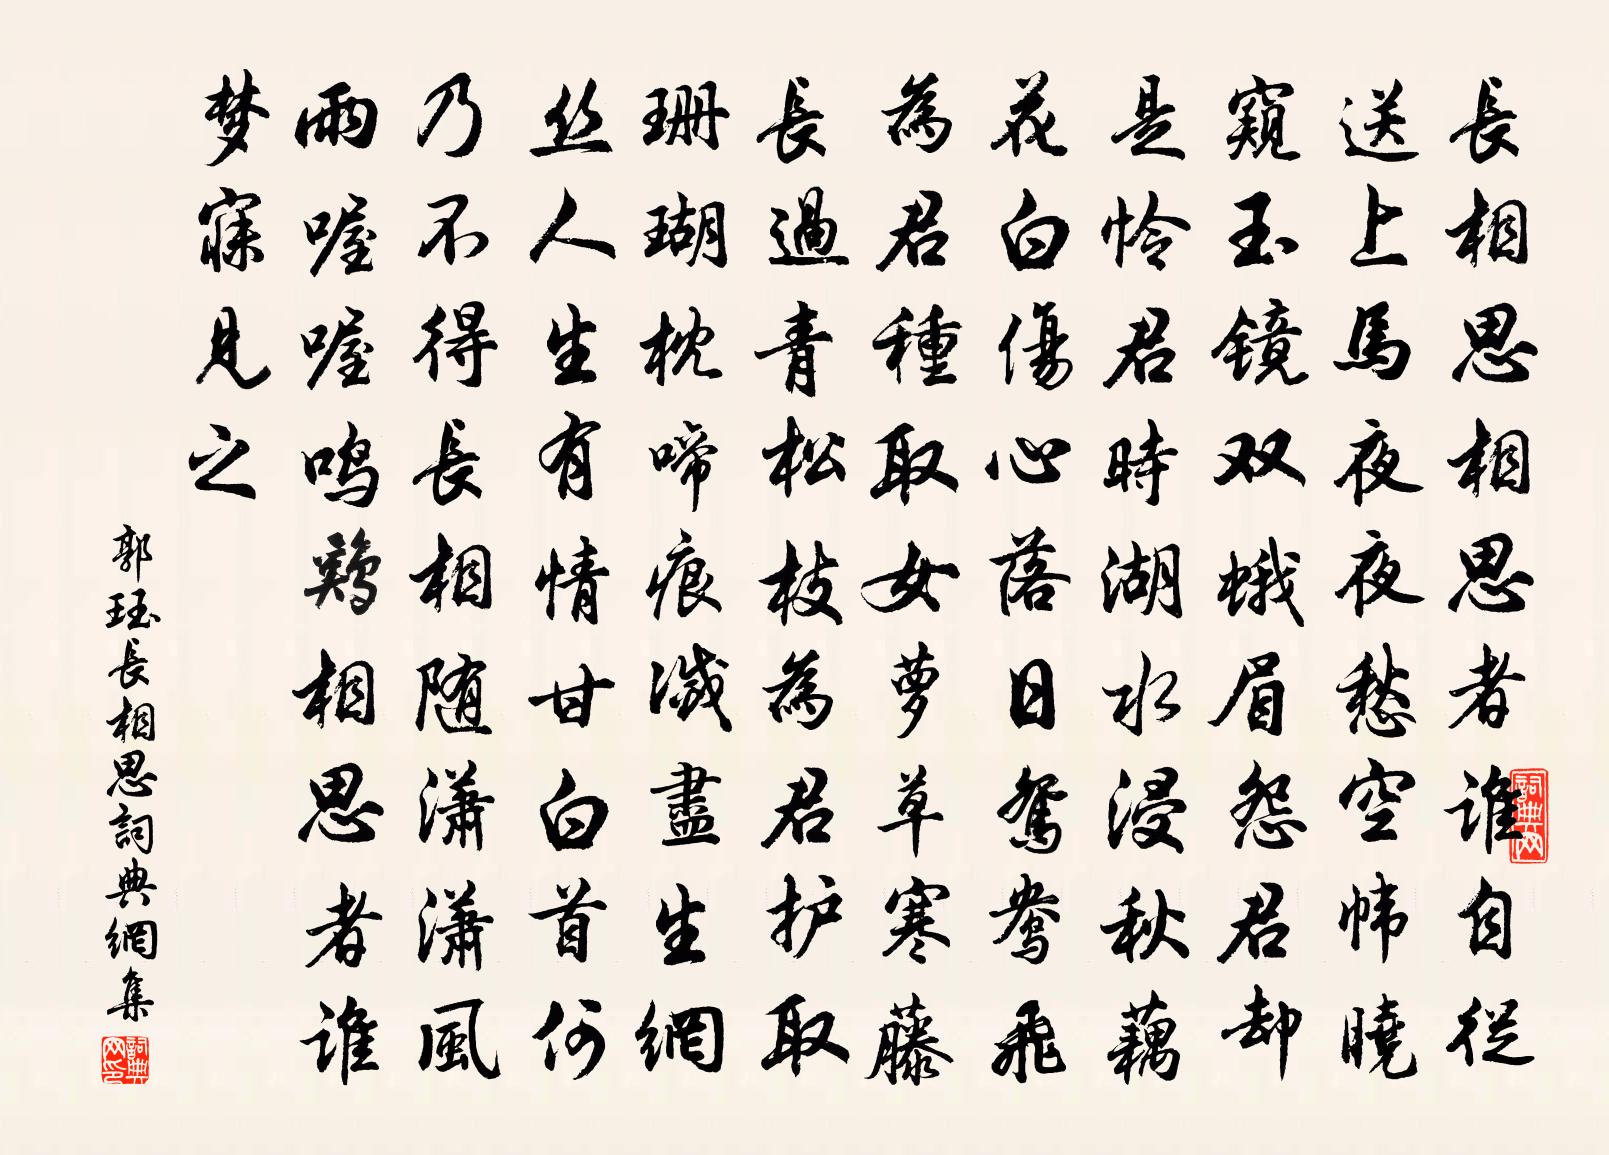 長相思相思者谁自從
送上馬夜夜愁空帏曉
窺玉镜双蛾眉怨君却
是怜君時湖水浸秋藕
花白傷心落日鸳鸯飛
為君種取女萝草寒藤
長過青松枝為君护取
珊瑚枕啼痕滅盡生網
丝人生有情甘白首何
乃不得長相随潇潇風
雨喔喔鸣鷄相思者谁
梦寐見之
郭珏長相思詞典網集
詞典网
詞典网印